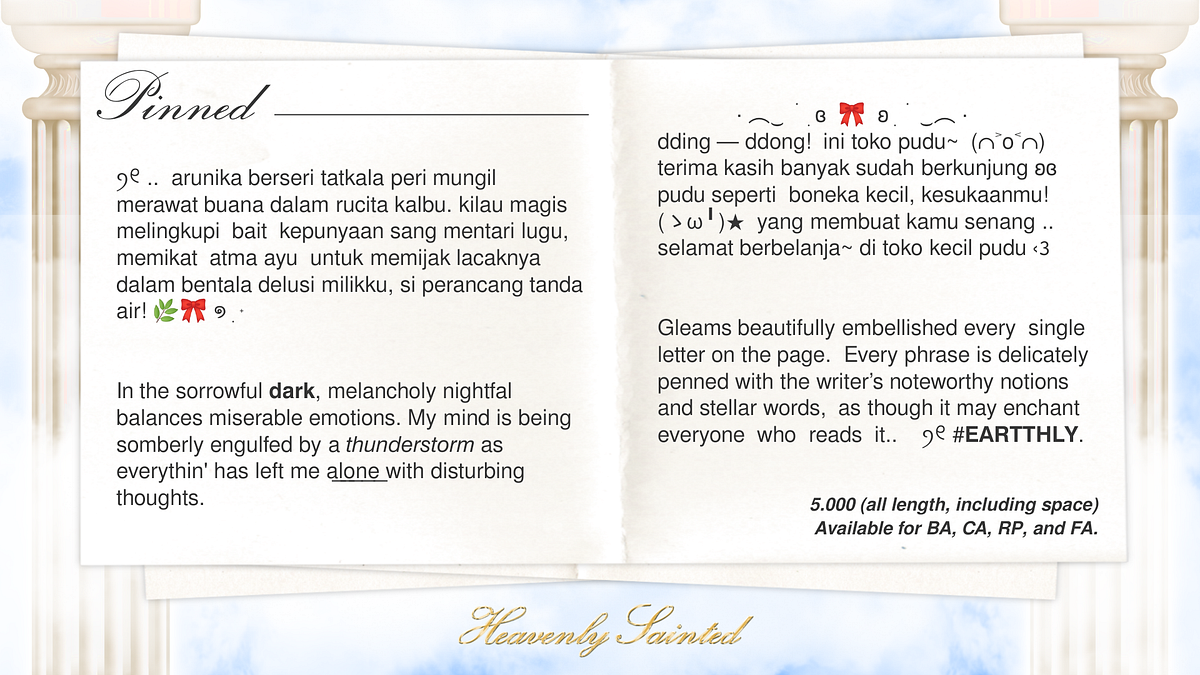 Pinned
୨୧ .. arunika berseri tatkala peri mungil
merawat buana dalam rucita kalbu. kilau magis
melingkupi bait kepunyaan sang mentari lugu,
memikat atma ayu untuk memijak lacaknya
dalam bentala delusi milikku, si perancang tanda
air! 🌿🎀 ๑ . ˖
In the sorrowful dark, melancholy nightfal
balances miserable emotions. My mind is being
somberly engulfed by a thunderstorm as
everythin' has left me alone with disturbing
thoughts.
· ︵‿ ˙ . ɞ 🎀 ʚ . ˙ ‿︵ ·
dding — ddong! ini toko pudu~ (∩˃o˂∩)
terima kasih banyak sudah berkunjung ʚɞ
pudu seperti boneka kecil, kesukaanmu!
(ゝω╹)★ yang membuat kamu senang ..
selamat berbelanja~ di toko kecil pudu ‹3
Gleams beautifully embellished every single
letter on the page. Every phrase is delicately
penned with the writer’s noteworthy notions
and stellar words, as though it may enchant
everyone who reads it.. ୨୧ #EARTTHLY.
5.000 (all length, including space)
Available for BA, CA, RP, and FA.
Heavenly Sainted